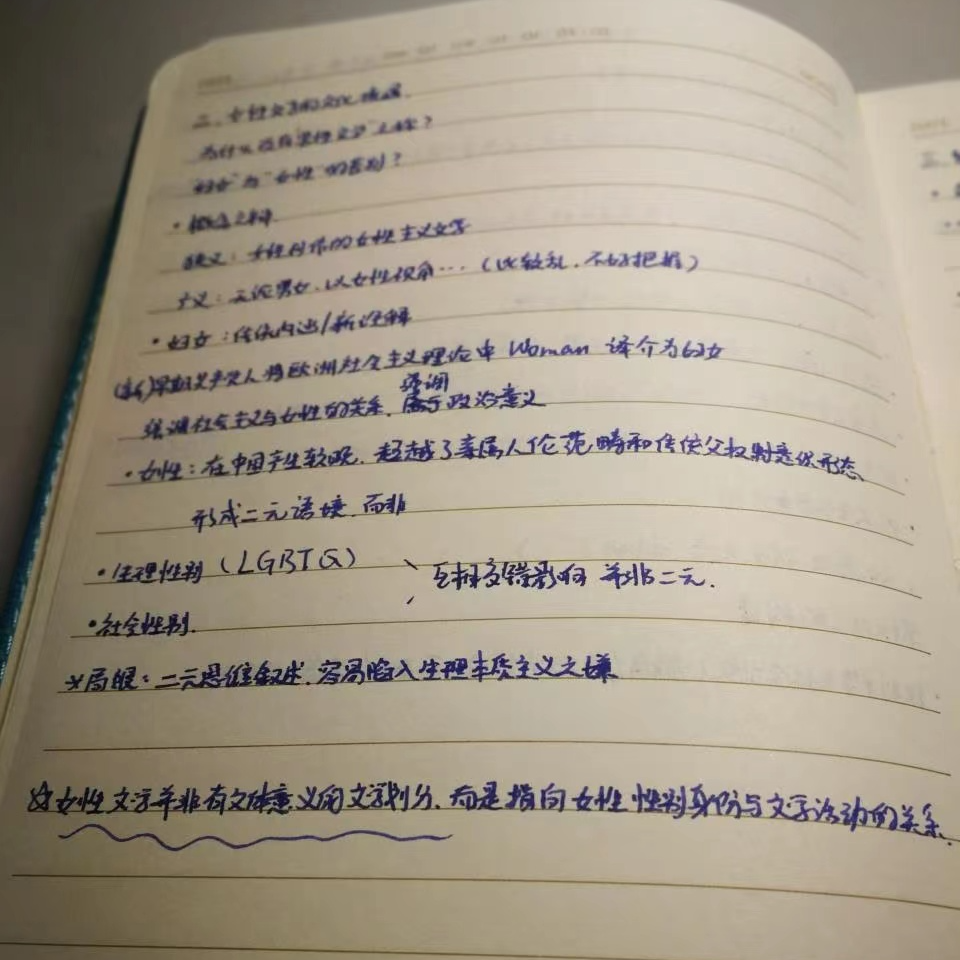 二、女性文学的文化
为什么没有"男性文学"之称?
"妇女"与"女性"的差别?
·概念之辩
狭义:女性创作的女性主义文学
广义:无论男女,以女性视角…(比较乱,不好把握)
·妇女:传统内达/新诠释
(新)早期共产党人将欧洲社会主义理论中Woman译介为妇女
强调社会主义与女性的关系,属于政治意义
强调
·女性:在中国产生较晚,超越了亲属人伦范畴和传统父权制意识形态、
形成二元语境,而非
·生理性别(LGBTQ)
互相交错影响 并非二元.
·社会性别.
局限:二元思维叙述,容易陷入生理本质主义之嫌
女性文学并非有文体意义的文学划分,而是指向女性性别身份与文学活动的关系.